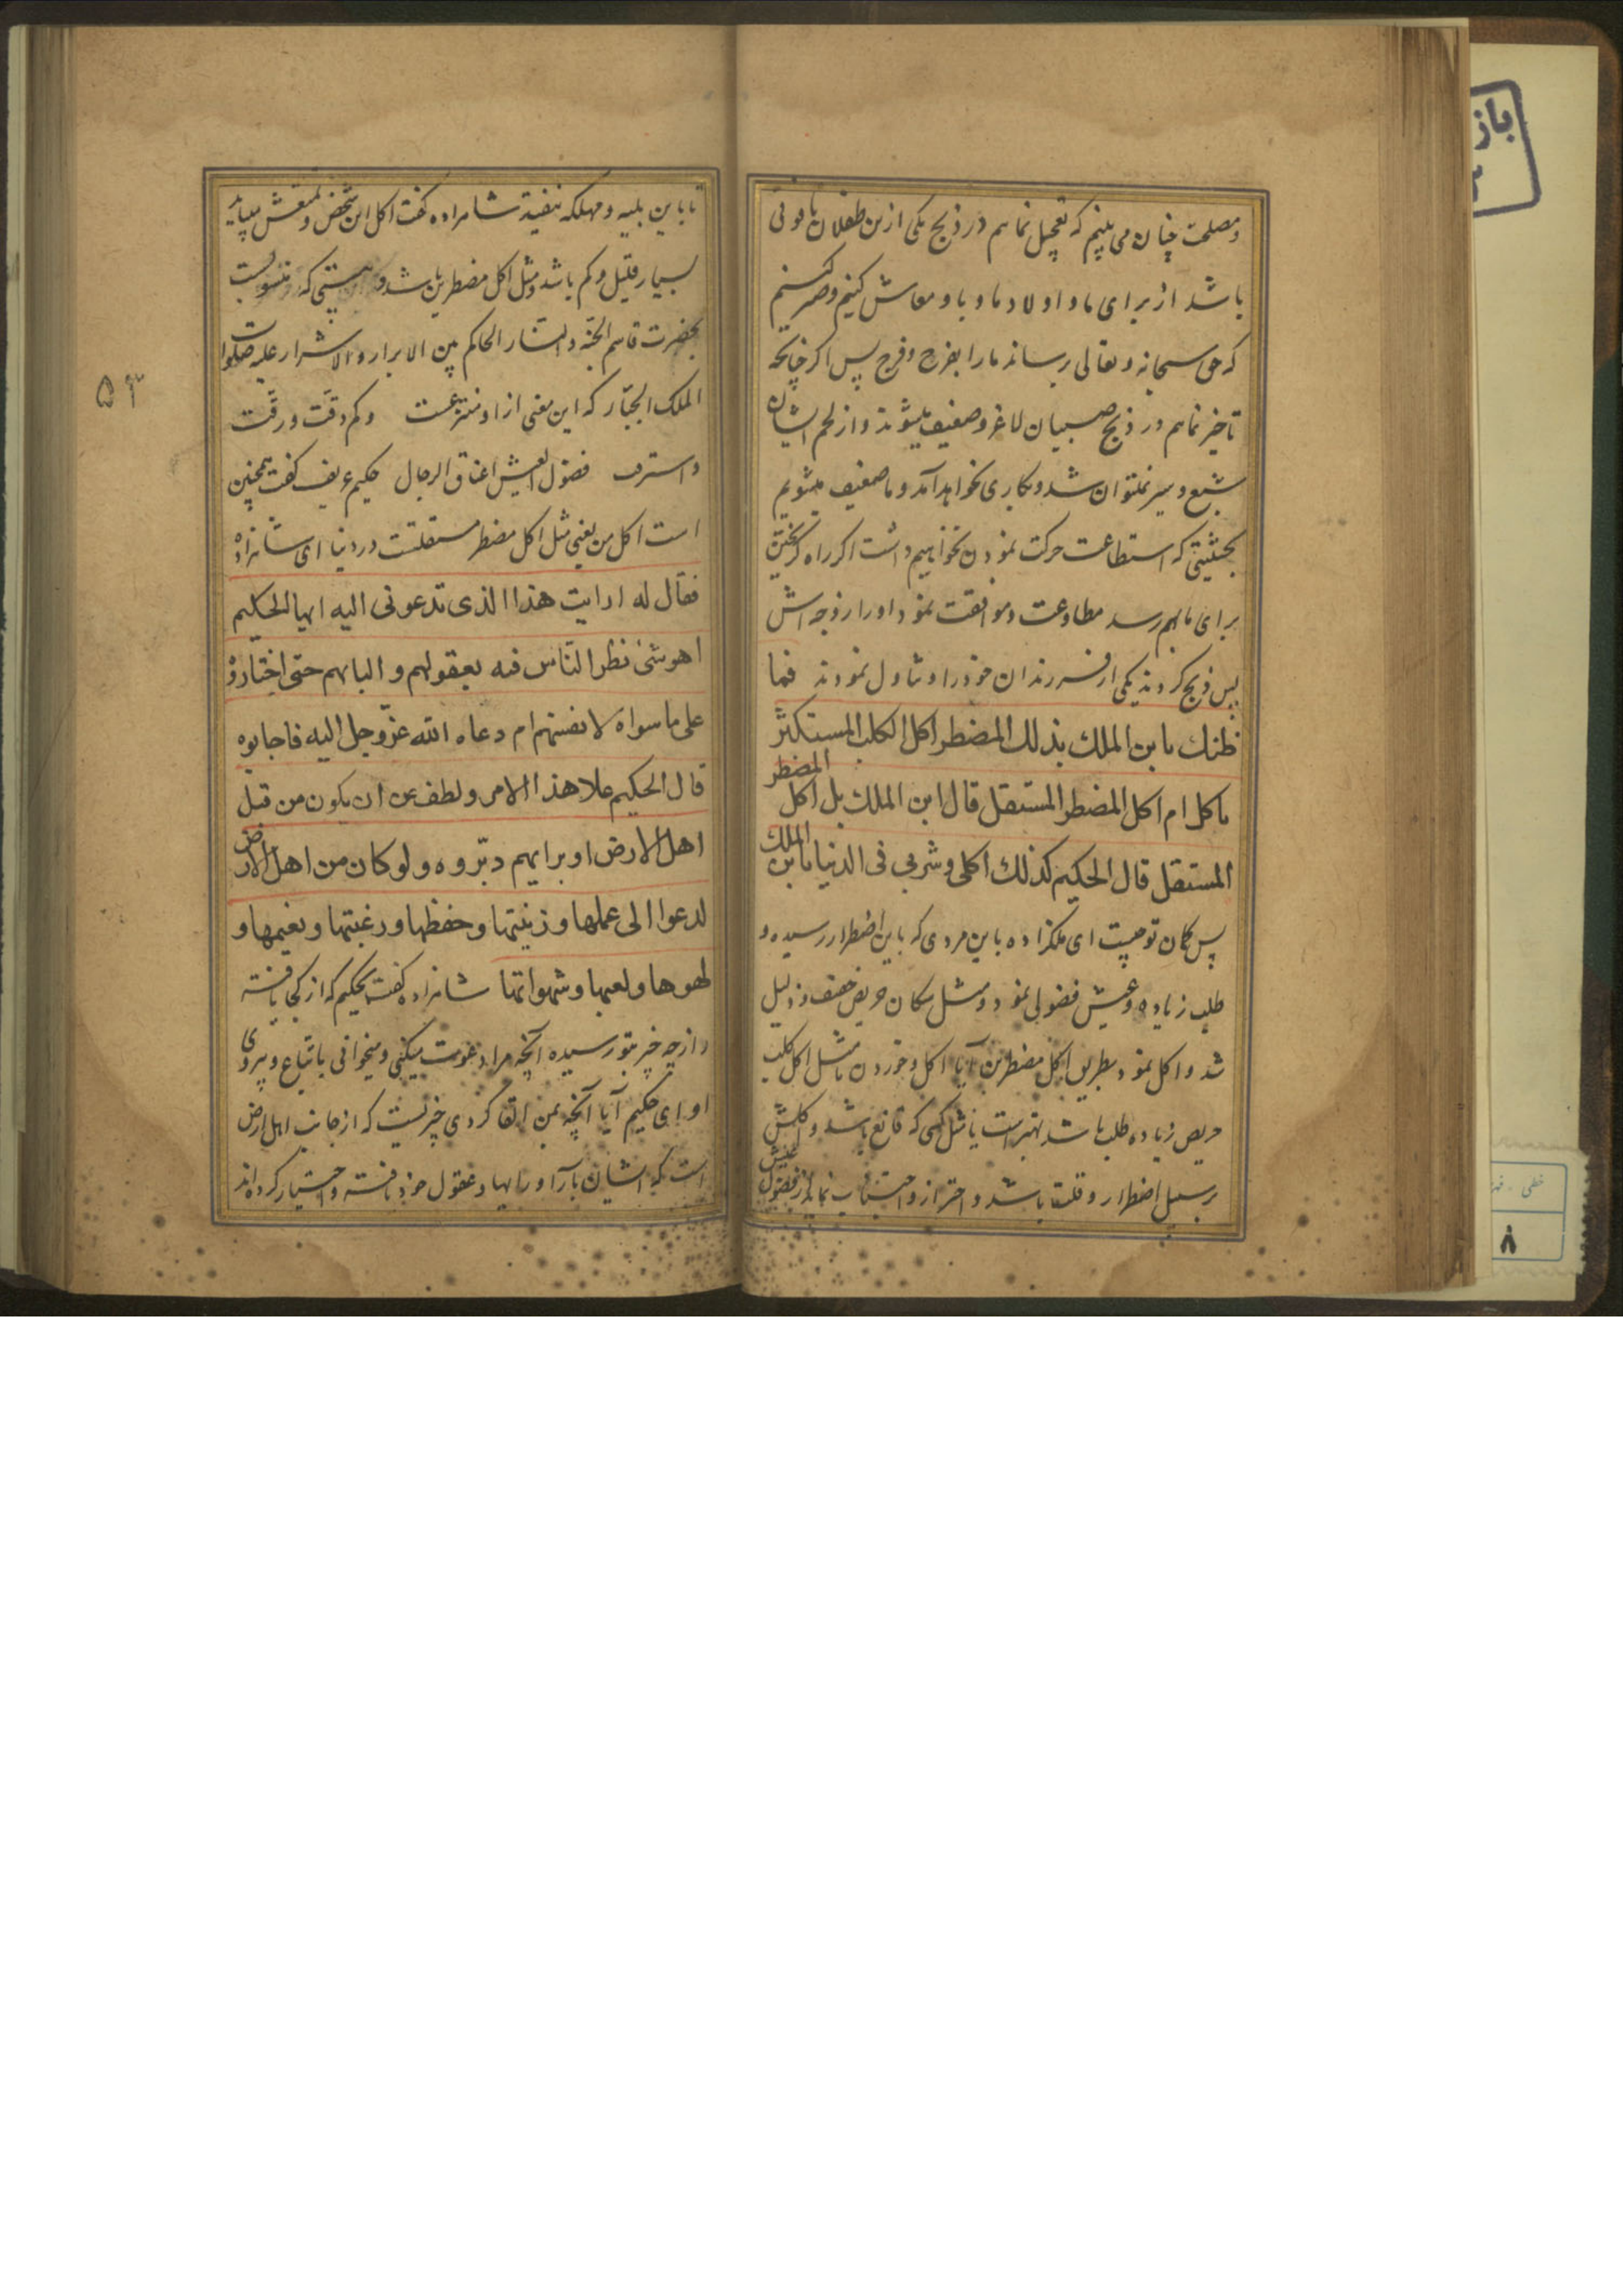 و مصلحت چنان می بینم که تعجیل نمائیم در ذبح یکی ازین طفلان تا قوتی
باشد از برای ما و اولاد ما و باو معاش کنیم و صبر کنیم
که حق سبحانه و تعالی برساند ما را بفرح و فرج پس اگر چنانچه
تاخیر نمائیم در ذبح صبیان لاغر و ضعیف میشوند و از لحم ایشان
شبع و سیر نمیتوان شد و بکاری نخواهد آمد و ما ضعیف میشویم
بحیثیتی که استطاعت حرکت نمودن نخواهیم داشت اگر راه گریختن
برای ما بهم رسد مطاوعت و موافقت نمود او را زوجه اش
پس ذبح کردند یکی از فرزندان خود را و تناول نمودند فما
ظنك یا بن الملك بذلك المضطر اکل الکلب المستکثر
یاکل ام اکل المضطر المستقل قال ابن الملك بل اکل المضطر
المستقل قال الحکیم کذلك اکلی و شربی فی الدنیا یا بن الملك
پس کمان تو چیست ای ملکزاده باین مردی که باین اضطرار رسیده و
طلب زیاده و عیش فضولی نمود و مثل سکان حریص خفیف و ذلیل
شد و اکل نمود بطریق اکل مضطرین آیا اکل و خوردن ما مثل اکل کلب
حریص زیاده طلب باشد بهتر است یا مثل کسی که قانع باشد و اکلش
بر سبیل اضطرار و قلت باشد و احتراز و اجتناب نماید از فضول عیش
تا باین بلیه و مهلکه نیفتد شاهزاده کفت اکل این شخص و تمتعش میباید
بسیار قلیل و کم باشد و مثل اکل مضطرین باشد و بیتی که منسوبست
بحضرت قاسم الجنه و النار الحاکم بین الابرار و الاشرار علیه صلوات
الملك الجبّار که این معنی از او منتزعست وکم دقّت و رقّت
و استرقت فضول العیش اعناق الرجال حکیم کفت همچنین
است اکل من یعنی مثل اکل مضطر مستقلست در دنیا ای شاهزاده
فقال له ارایت هذا الذی تدعونی الیه ایها الحکیم
اهو شیٔ نظر الناس فیه بعقولهم و البابهم حتی اختاروه
علی ما سواه لانفسهم ام دعاه الله عزّوجل الیه فاجابوه
قال الحکیم علا هذا الامر و لطف عن ان یکون من قبل
اهل الارض او برایهم دبّروه و لو کان من اهل الارض
لدعوا الی عملها و زینتها و حفظها و رغبتها و نعیمها و
لهوها و لعبها و شهواتها شاهزاده کفت بحکیم که از کجا یافته
و از چه خبر بتو رسیده آنچه مرا دعوت میکنی و میخوانی باتباع و پیروی
او ای حکیم آیا آنچه بمن القا کردی چیزیست که از جانب اهل ارض
است که ایشان بآرا و رایها و عقول خود یافته و اختیار کرده اند
۵۳
باز
خطی
۸